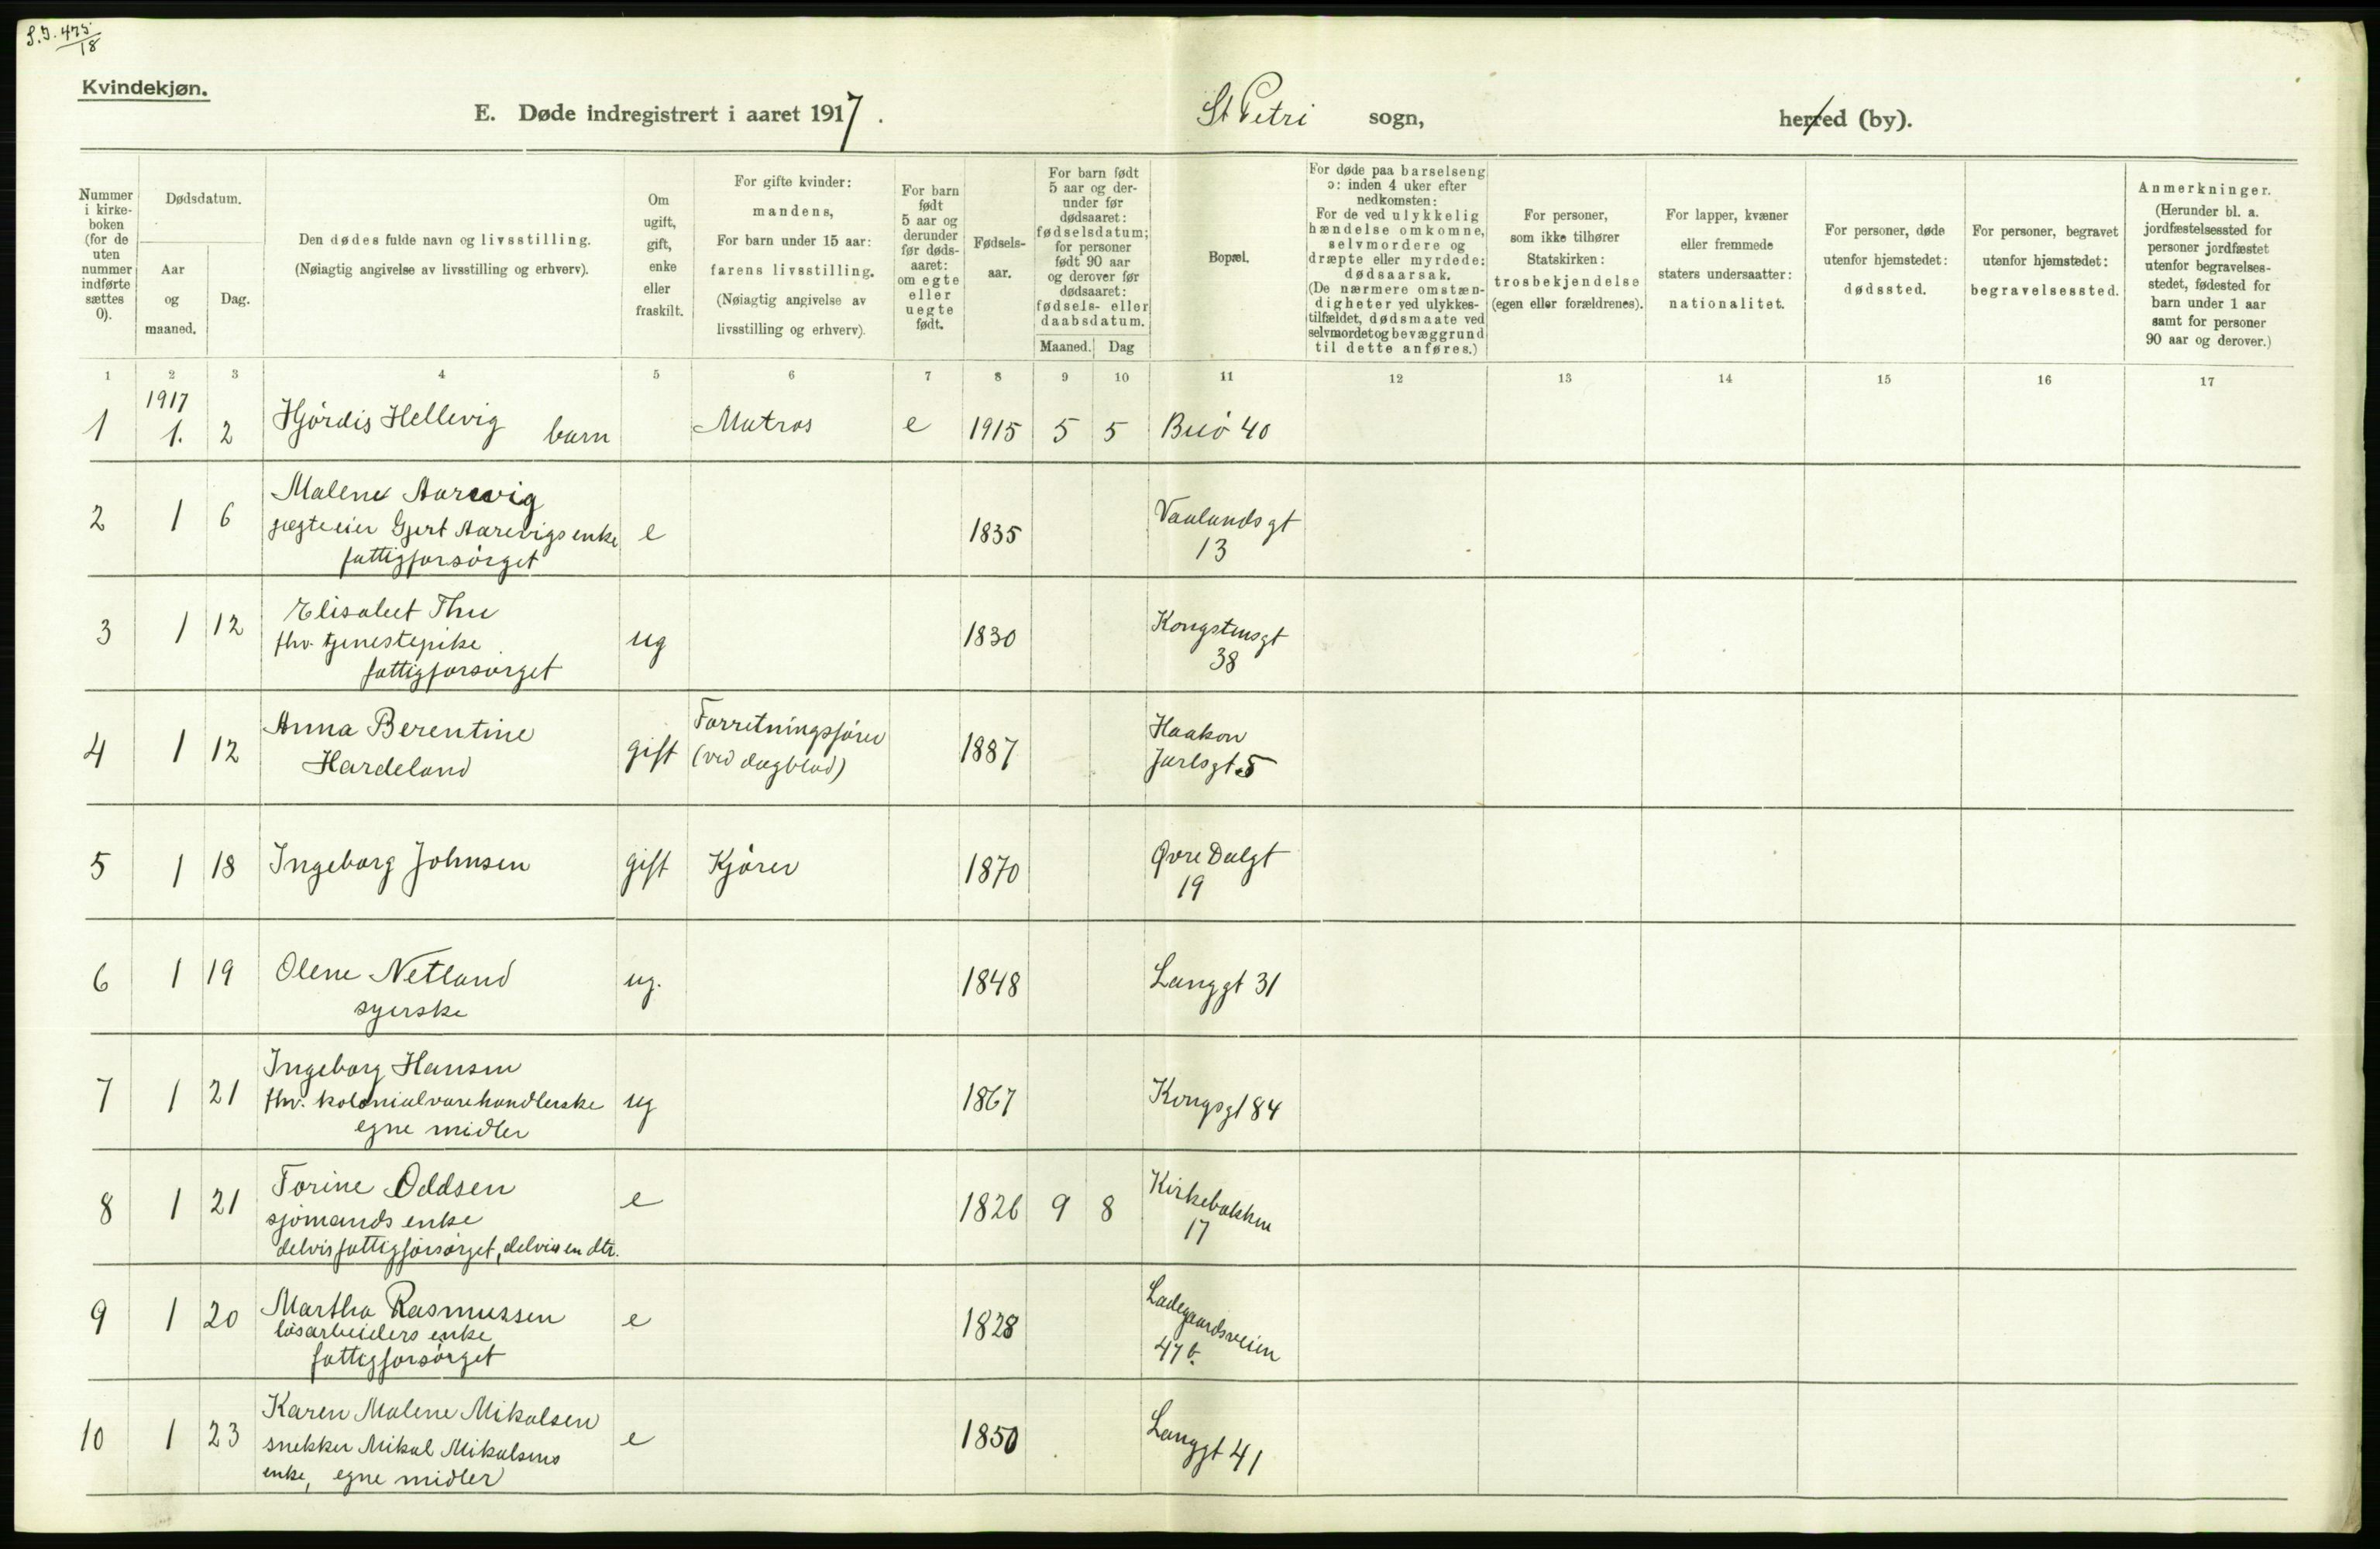 S.J. 475/18
Kvindekjøn.
E. Døde indregistrert i aaret 1917.
St Petri sogn,
herred (by).
Nummer i kirke-boken (for de uten nummer indførte sættes 0).
Dødsdatum.
Aar og maaned.
Dag.
Den dødes fulde navn og livsstilling.
(Nøiagtig angivelse av livsstilling og erhverv).
Om ugift, gift, enke eller fraskilt.
For gifte kvinder:
mandens,
For barn under 15 aar:
farens livsstilling.
(Nøiagtig angivelse av
livsstilling og erhverv).
For barn født 5 aar og derunder før døds-aaret: om egte eller uegte født.
Fødsels-aar.
For barn født 5 aar og der-under før dødsaaret: fødselsdatum; for personer født 90 aar og derover før dødsaaret: fødsels- eller daabsdatum.
Maaned.
Dag
Bopæl.
For døde paa barselseng
ɔ: inden 4 uker efter
nedkomsten:
For de ved ulykkelig
hændelse omkomne,
selvmordere og
dræpte eller myrdede:
dødsaarsak.
(De nærmere omstæn-
digheter ved ulykkes-
tilfældet, dødsmaate ved
selvmordet og bevæggrund
til dette anføres.)
For personer,
som ikke tilhører
Statskirken:
trosbekjendelse
(egen eller forældrenes).
For lapper, kvæner
eller fremmede
staters undersaatter:
nationalitet.
For personer, døde
utenfor hjemstedet:
dødssted.
For personer, begravet
utenfor hjemstedet:
begravelsessted.
Anmerkninger.
(Herunder bl. a.
jordfæstelsessted for
personer jordfæstet
utenfor begravelses-
stedet, fødested for
barn under 1 aar
samt for personer
90 aar og derover.)
1 2 3 4 5 6 7 8 9 10 11 12 13 14 15 16 17
1917
1 1. 2 Hjördis Hellevig barn Matros e 1915 5 5 Buö 40
2 1 6 Malene Aarevig
jægteeier Gjert Aarevigs enke
fattigforsörget
e 1835 Vaalandsgt
13
3 1 12 Elisabet Thu
fhv. tjenestepike
fattigforsörget
ug 1830 Kongstensgt
38
4 1 12 Anna Berentine
Hardeland
gift Forretningsförer
(ved dagblad)
1887 Haakon
Jarlsgt. 5
5 1 18 Ingeborg Johnsen gift Kjörer 1870 Øvre Dalgt
19
6 1 19 Olene Netland
syerske
ug. 1848 Langgt 31
7 1 21 Ingeborg Hansen
fhv. kolonialvarehandlerske
egne midler
ug 1867 Kongsgt 84
8 1 21 Torine Oddsen
sjömands enke
delvis fattigforsörget, delvis en dtr.
e 1826 9 8 Kirkebakken
17
9 1 20 Martha Rasmussen
lösarbeiders enke
fattigforsörget
e 1828 Ladegaardsveien
47 b.
10 1 23 Karen Malene Mikalsen
snekker Mikal Mikalsens
enke, egne midler
e 1850 Langgt 41